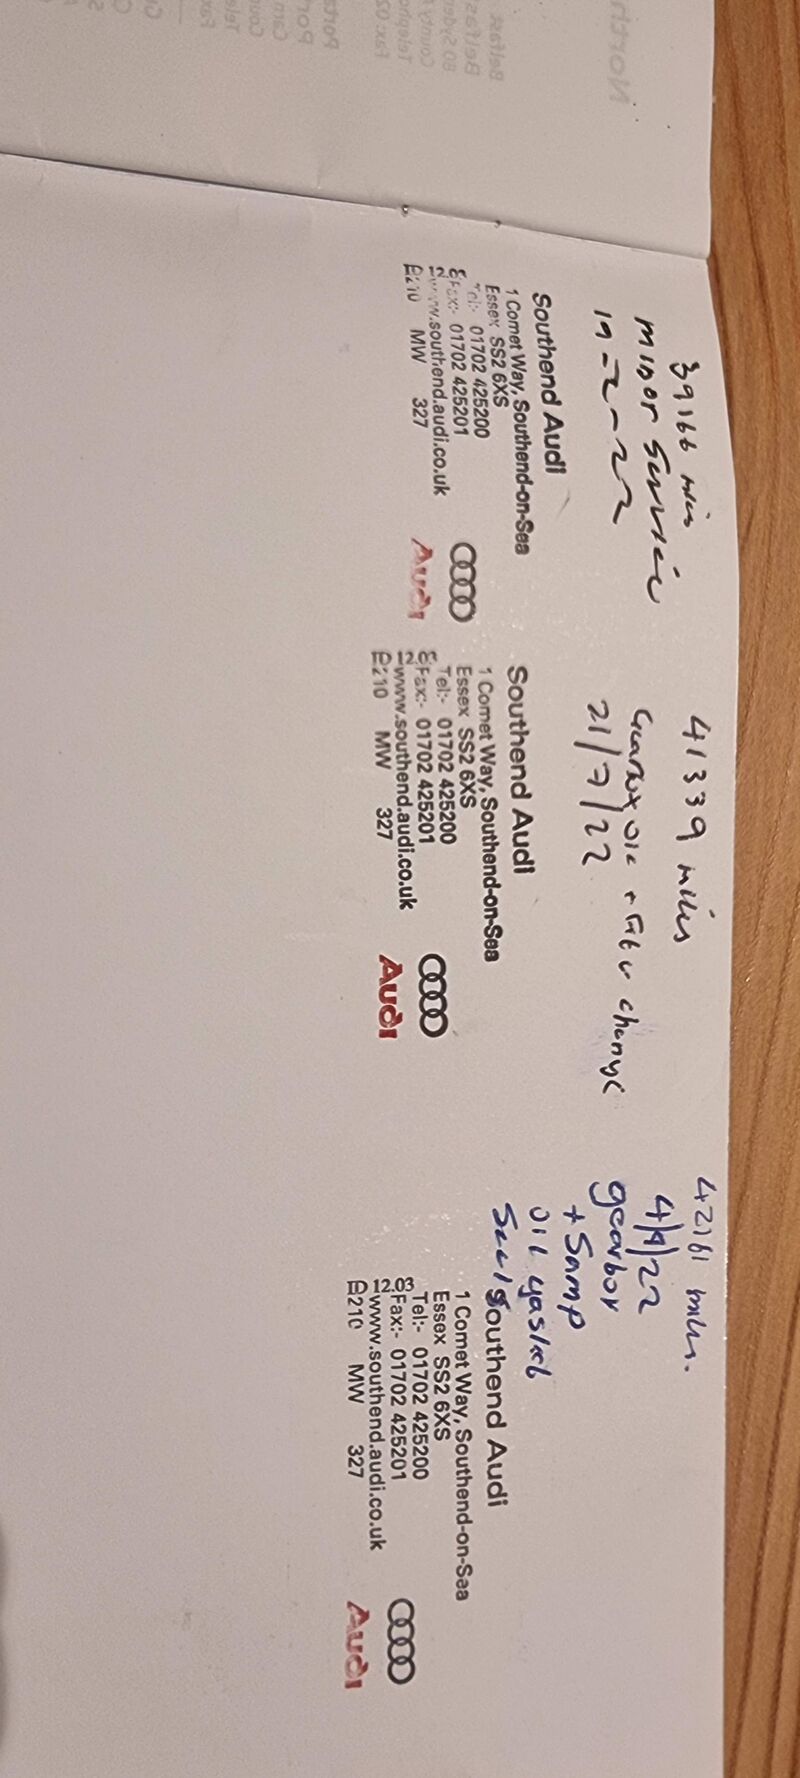 39166 miles
minor service
19-2-22
Southend Audi
1 Comet Way, Southend-on-Sea
Essex SS2 6XS
Tel:- 01702 425200
Fax:- 01702 425201
www.southend.audi.co.uk
MW 327
Audi
41339 miles
Gearbox oil + filter change
21/7/22
Southend Audi
1 Comet Way, Southend-on-Sea
Essex SS2 6XS
Tel:- 01702 425200
Fax:- 01702 425201
www.southend.audi.co.uk
MW 327
Audi
miles.
gearbox
+ Sump
oil gasket
Seals
Southend Audi
1 Comet Way, Southend-on-Sea
Essex SS2 6XS
Tel:- 01702 425200
Fax:- 01702 425201
www.southend.audi.co.uk
MW 327
Audi